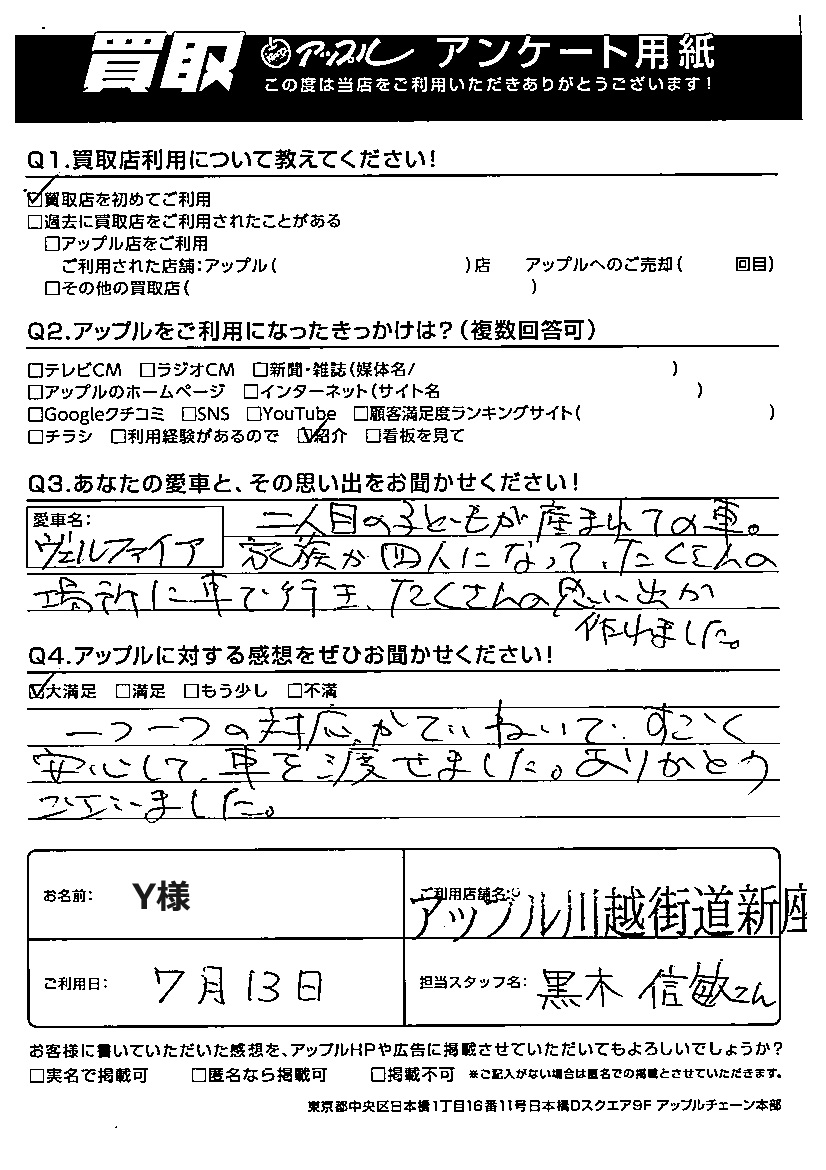 買取 アップル アンケート用紙
この度は当店をご利用いただきありがとうございます!
Q1.買取店利用について教えてください!
☑買取店を初めてご利用
□過去に買取店をご利用されたことがある
□アップル店をご利用
ご利用された店舗:アップル( )店 アップルへのご売却( 回目)
□その他の買取店( )
Q2.アップルをご利用になったきっかけは?(複数回答可)
□テレビCM □ラジオCM □新聞・雑誌(媒体名/ )
□アップルのホームページ □インターネット(サイト名 )
□Googleクチコミ □SNS □YouTube □顧客満足度ランキングサイト( )
□チラシ □利用経験があるので ☑紹介 □看板を見て
Q3.あなたの愛車と、その思い出をお聞かせください!
愛車名: 二人目の子どもが産まれての車。
ヴェルファイア 家族が四人になって、たくさんの
場所に車で行き、たくさんの思い出が
作れました。
Q4.アップルに対する感想をぜひお聞かせください!
☑大満足 □満足 □もう少し □不満
一つ一つの対応がていねいで、すごく
安心して、車を渡せました。ありがとう
ございました。
お名前: Y様 ご利用店舗名: アップル川越街道新座
ご利用日: 7月13日 担当スタッフ名: 黒木 信敏さん
お客様に書いていただいた感想を、アップルHPや広告に掲載させていただいてもよろしいでしょうか?
□実名で掲載可 □匿名なら掲載可 □掲載不可 ※ご記入がない場合は匿名での掲載とさせていただきます。
東京都中央区日本橋1丁目16番11号日本橋Dスクエア9F アップルチェーン本部